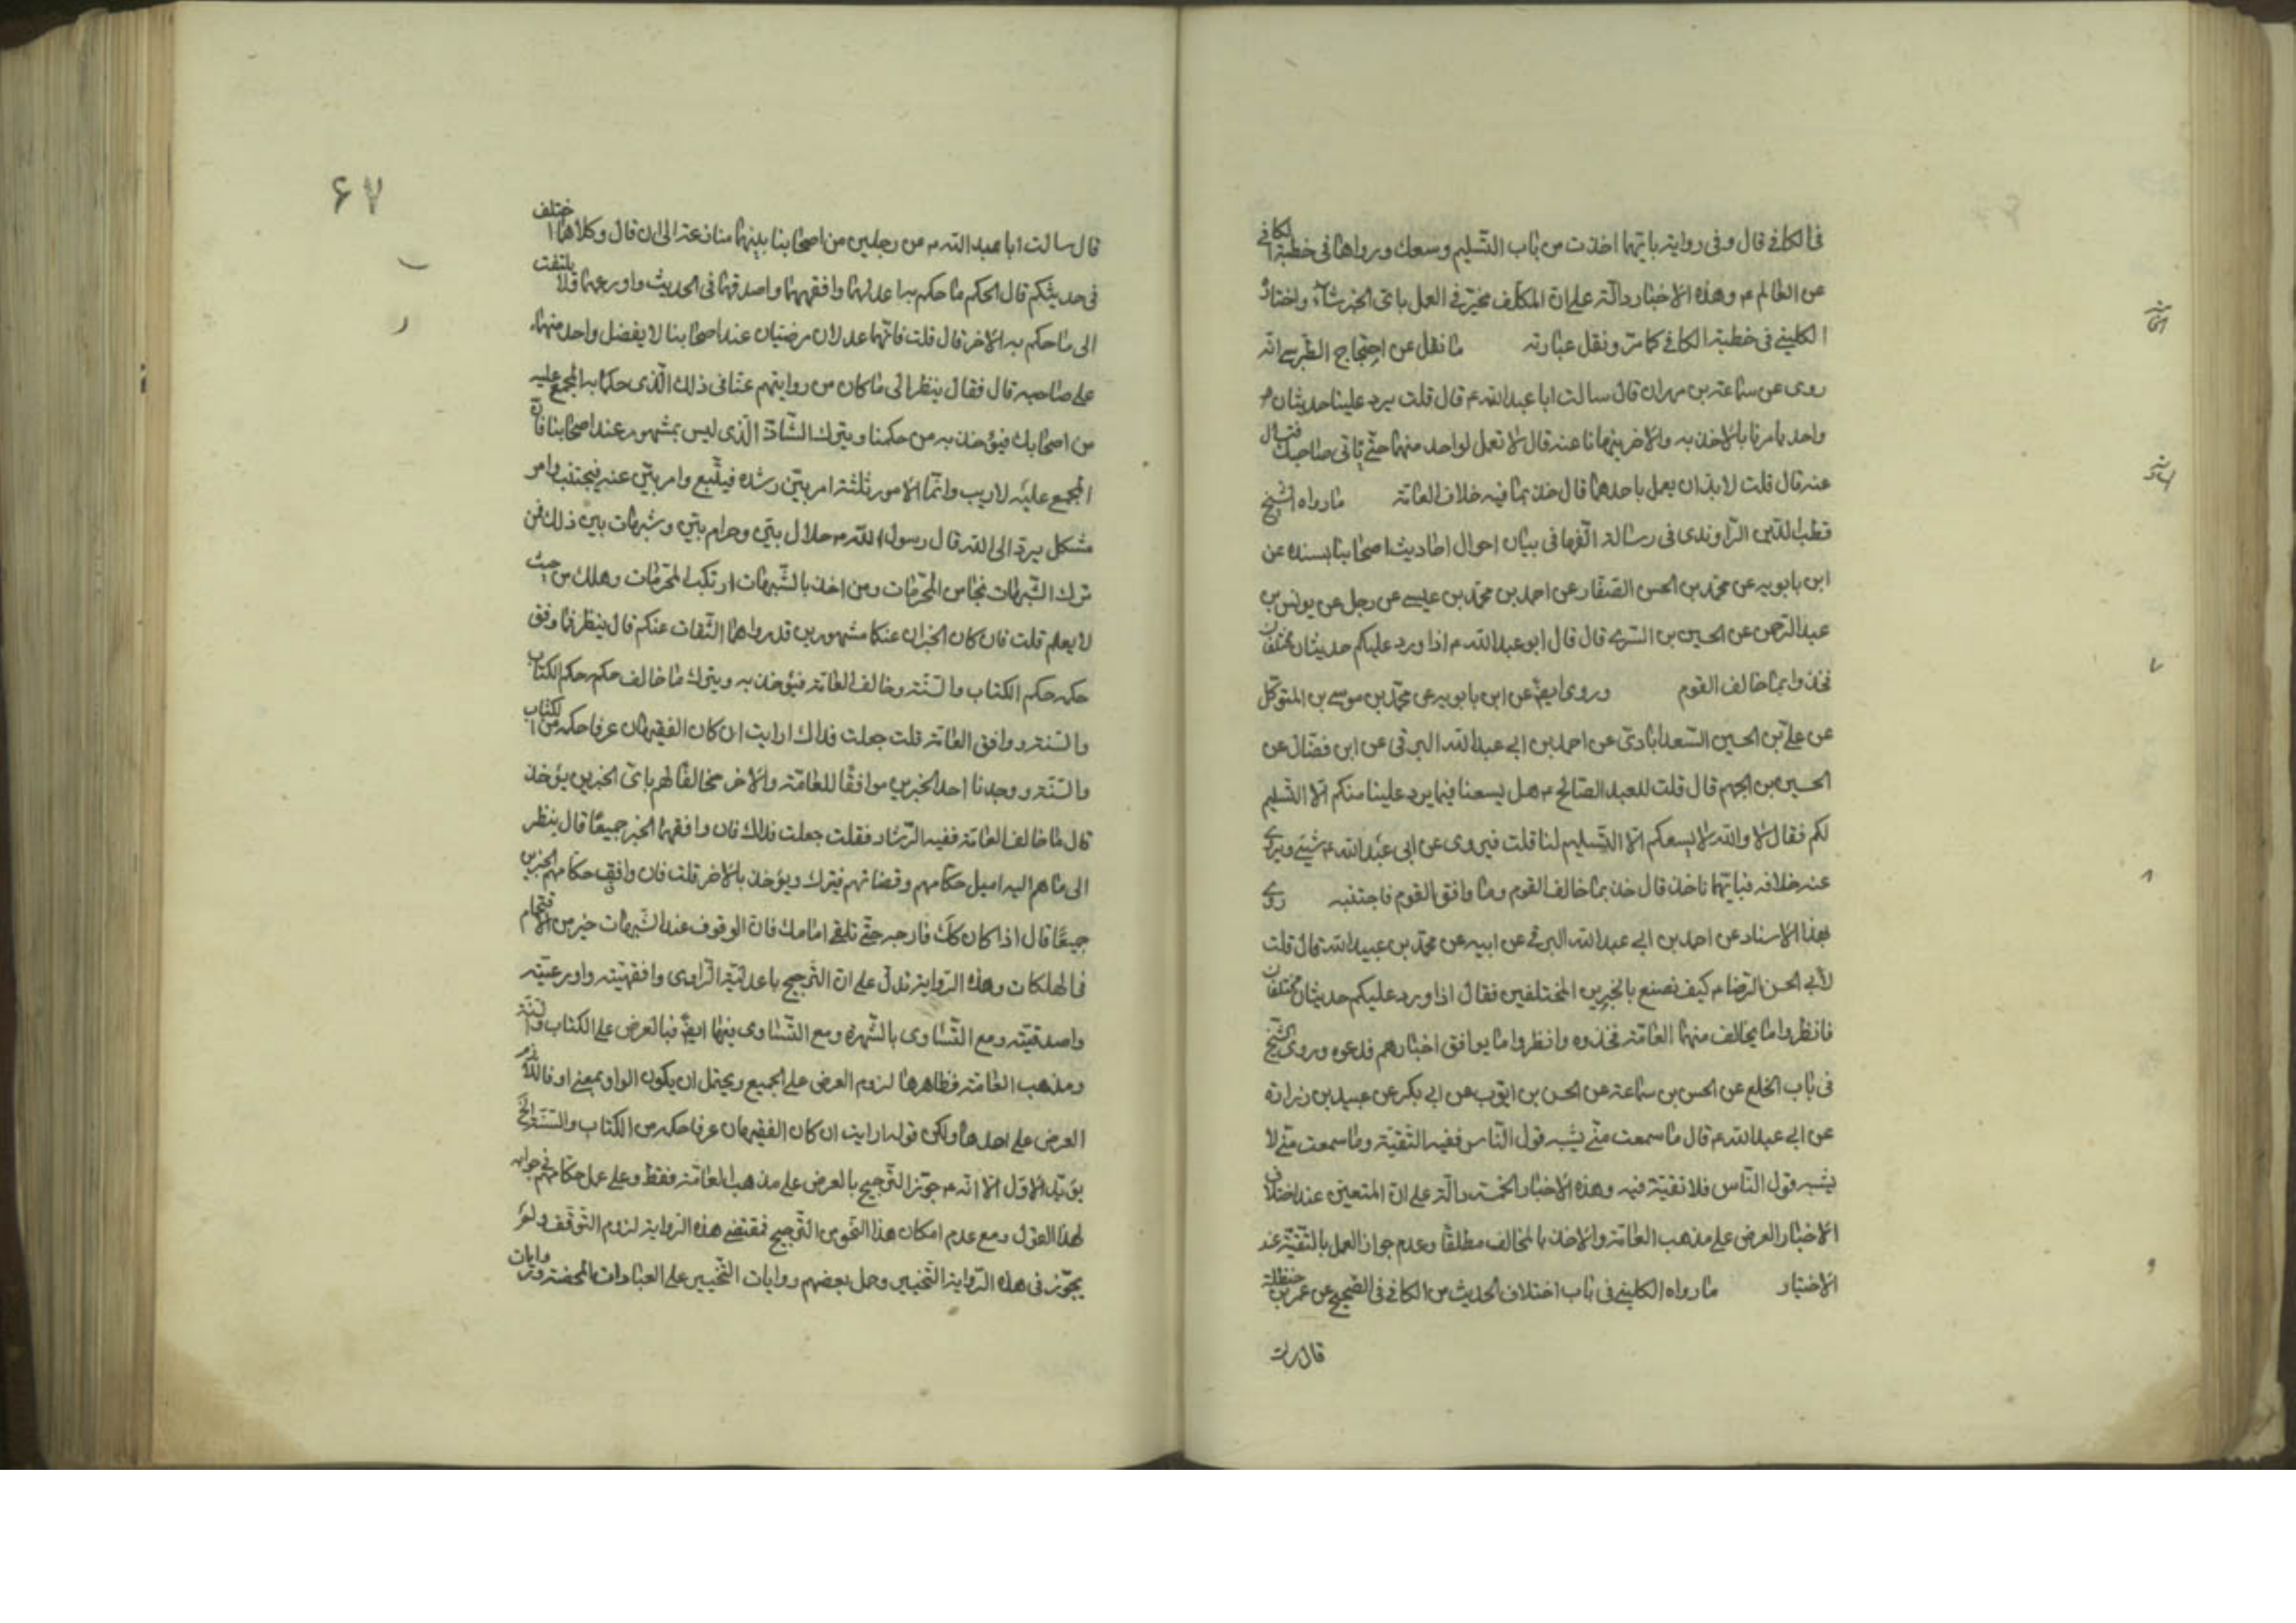 فى الكافى قال وفى رواية بايّهما اخذت من باب التسليم وسعك ورواها فى خطبة الكافى
عن العالم ع وهذه الاخبار دالّة على ان المكلّف مخيّر فى العمل باىّ الخبر شاء واختار
الكلينى فى خطبة الكافى كما مرّ ونقل عبارته ما نقل عن احتجاج الطبرسى انه
روى عن سماعة بن مهران قال سالت ابا عبد الله ع قال قلت يرد علينا حديثان
واحد يامرنا بالاخذ به والاخر ينهانا عنه قال لا تعمل لواحد منهما حتّى ياتى صاحبك فتسال
عنه قال قلت لا بدّ ان يعمل باحدهما قال خذ بما فيه خلاف العامّة ما رواه الشيخ
قطب الدّين الرّاوندى فى رسالة الّفها فى بيان احوال احاديث اصحابنا بسنده عن
ابن بابويه عن محمّد بن الحسن الصفّار عن احمد بن محمّد بن عيسى عن رجل عن يونس بن
عبد الرّحمن عن الحسين بن السّرى قال قال ابو عبد الله ع اذا ورد عليكم حديثان مختلفان
فخذوا بما خالف القوم وروى ايضا عن ابن بابويه عن محمّد بن موسى بن المتوكّل
عن علىّ بن الحسين السّعدابادىّ عن احمد بن ابى عبد الله البرقى عن ابن فضّال عن
الحسين بن الجهم قال قلت للعبد الصّالح ع هل يسعنا فيما يرد علينا منكم الّا التسليم
لكم فقال لا والله لا يسعكم الّا التّسليم لنا قلت فيروى عن ابى عبد الله ع شيئ ويروى
عنه خلافه فبايّهما ناخذ قال خذ بما خالف القوم وما وافق القوم فاجتنبه روى
بهذا الاسناد عن احمد بن ابى عبد الله البرقى عن ابيه عن محمّد بن عبيد الله قال قلت
لأبى الحسن الرّضا ع كيف نصنع بالخبرين المختلفين فقال اذا ورد عليكم حديثان مختلفان
فانظروا ما يخالف منهما العامّة فخذوه وانظروا ما يوافق اخبارهم فدعوه وروى الشّيخ
فى باب الخلع عن الحسن بن سماعة عن الحسن بن ايّوب عن ابى بكر عن عبيد بن زرارة
عن ابى عبد الله ع قال ما سمعت منّى يشبه قول النّاس ففيه التّقيّة وما سمعت منّى لا
يشبه قول النّاس فلا تقيّة فيه وهذه الاخبار الخمسة دالّة على انّ المتعيّن عند اختلاف
الاخبار العرض على مذهب العامّة والاخذ بالمخالف مطلقًا وعدم جواز العمل بالتقيّة عند
الاختيار ما رواه الكلينى فى باب اختلاف الحديث من الكافى فى الصّحيح عن عمر بن حنظلة
قال سالت
٦٧
قال سالت ابا عبد الله ع عن رجلين من اصحابنا بينهما منازعة الى ان قال وكلاهما اختلف
فى حديثكم قال الحكم ما حكم به اعدلهما وافقههما واصدقهما فى الحديث واورعهما ولا يلتفت
الى ما حكم به الاخر قال قلت فانّهما عدلان مرضيّان عند اصحابنا لا يفضل واحد منهما
على صاحبه قال فقال ينظر الى ما كان من روايتهم عنّا فى ذلك الّذى حكما به المجمع عليه
من اصحابك فيؤخذ به من حكمنا ويترك الشّاذّ الّذى ليس بمشهور عند اصحابنا فانّ
المجمع عليه لا ريب وانّما الامور ثلثة امر بيّن رشده فيتّبع وامر بيّن عنه فيجتنب وامر
مشكل يردّ الى الله قال رسول الله ص حلال بيّن وحرام بيّن وشبهات بين ذلك فمن
ترك الشّبهات نجا من المحرّمات ومن اخذ بالشّبهات ارتكب المحرّمات وهلك من حيث
لا يعلم قلت فان كان الخبران عنكما مشهورين قد رواهما الثّقات عنكم قال ينظر فما وفق
حكمه حكم الكتاب والسّنّة وخالف العامّة فيؤخذ به ويترك ما خالف حكمه حكم الكتاب
والسّنة ووافق العامّة قلت جعلت فداك ارايت ان كان الفقيهان عرفا حكمه من الكتاب
والسّنّة ووجدنا احد الخبرين موافقًا للعامّة والاخر مخالفًا لهم باىّ الخبرين يؤخذ
قال ما خالف العامّة ففيه الرّشاد فقلت جعلت فداك فان وافقهما الخبر جميعًا قال ينظر
الى ما هم اليه اميل حكّامهم وقضاتهم فيترك ويؤخذ بالاخر قلت فان وافق حكّامهم الخبرين
جميعًا قال اذا كان كك فارجه حتّى تلقى امامك فانّ الوقوف عند الشّبهات خير من الاقتحام
فى الهلكات وهذه الرّواية تدلّ على انّ التّرجيح باعدليّة الرّاوى وافقهيّته واورعيّته
واصدقيّته ومع التّساوى بالشّهرة ومع التّساوى فيهما ايضًا فبالعرض على الكتاب والسّنّة
ومذهب العامّة فظاهرها لزوم العرض على الجميع ويحتمل ان يكون الواو بمعنى او فاللازم
العرض على احدها ولكن قوله ارايت ان كان الفقيهان عرفا حكمه من الكتاب والسّنّة الخ
يؤيّد الاوّل الّا انّه ع جوّز التّرجيح بالعرض على مذهب العامّة فقط وعلى عمل حكّامهم فى جواب
لهذا القول ومع عدم امكان هذا النّحو من التّرجيح فمقتضى هذه الرّواية لزوم التّوقّف ولم
يجوّز فى هذه الرّواية التّخيير وحمل بعضهم روايات التّخيير على العبادات المحضة وروايات